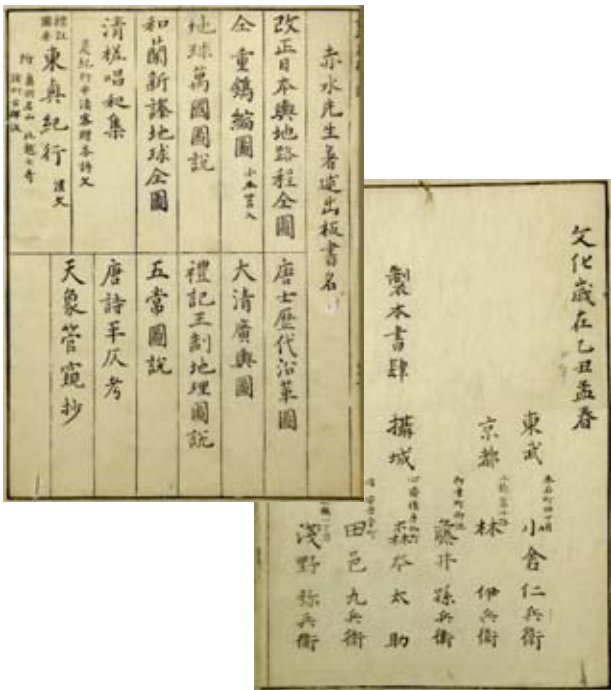 赤水先生著述出板書名
改正日本輿地路程全圖
唐土歷代沿革圖
仝 重鐫縮圖 小本箱入
大清廣輿圖
地球萬國圖說
禮記王制地理圖說
和蘭新譯地球全圖
五常圖說
清槎唱和集
唐詩平仄考
東奧紀行 漢文
天象管窺抄
文化歲在乙丑孟春
製本書肆
東武
小倉仁兵衛
京都
林 伊兵衛
藤井孫兵衛
攝城
森本太助
田邑九兵衛
淺野弥兵衛